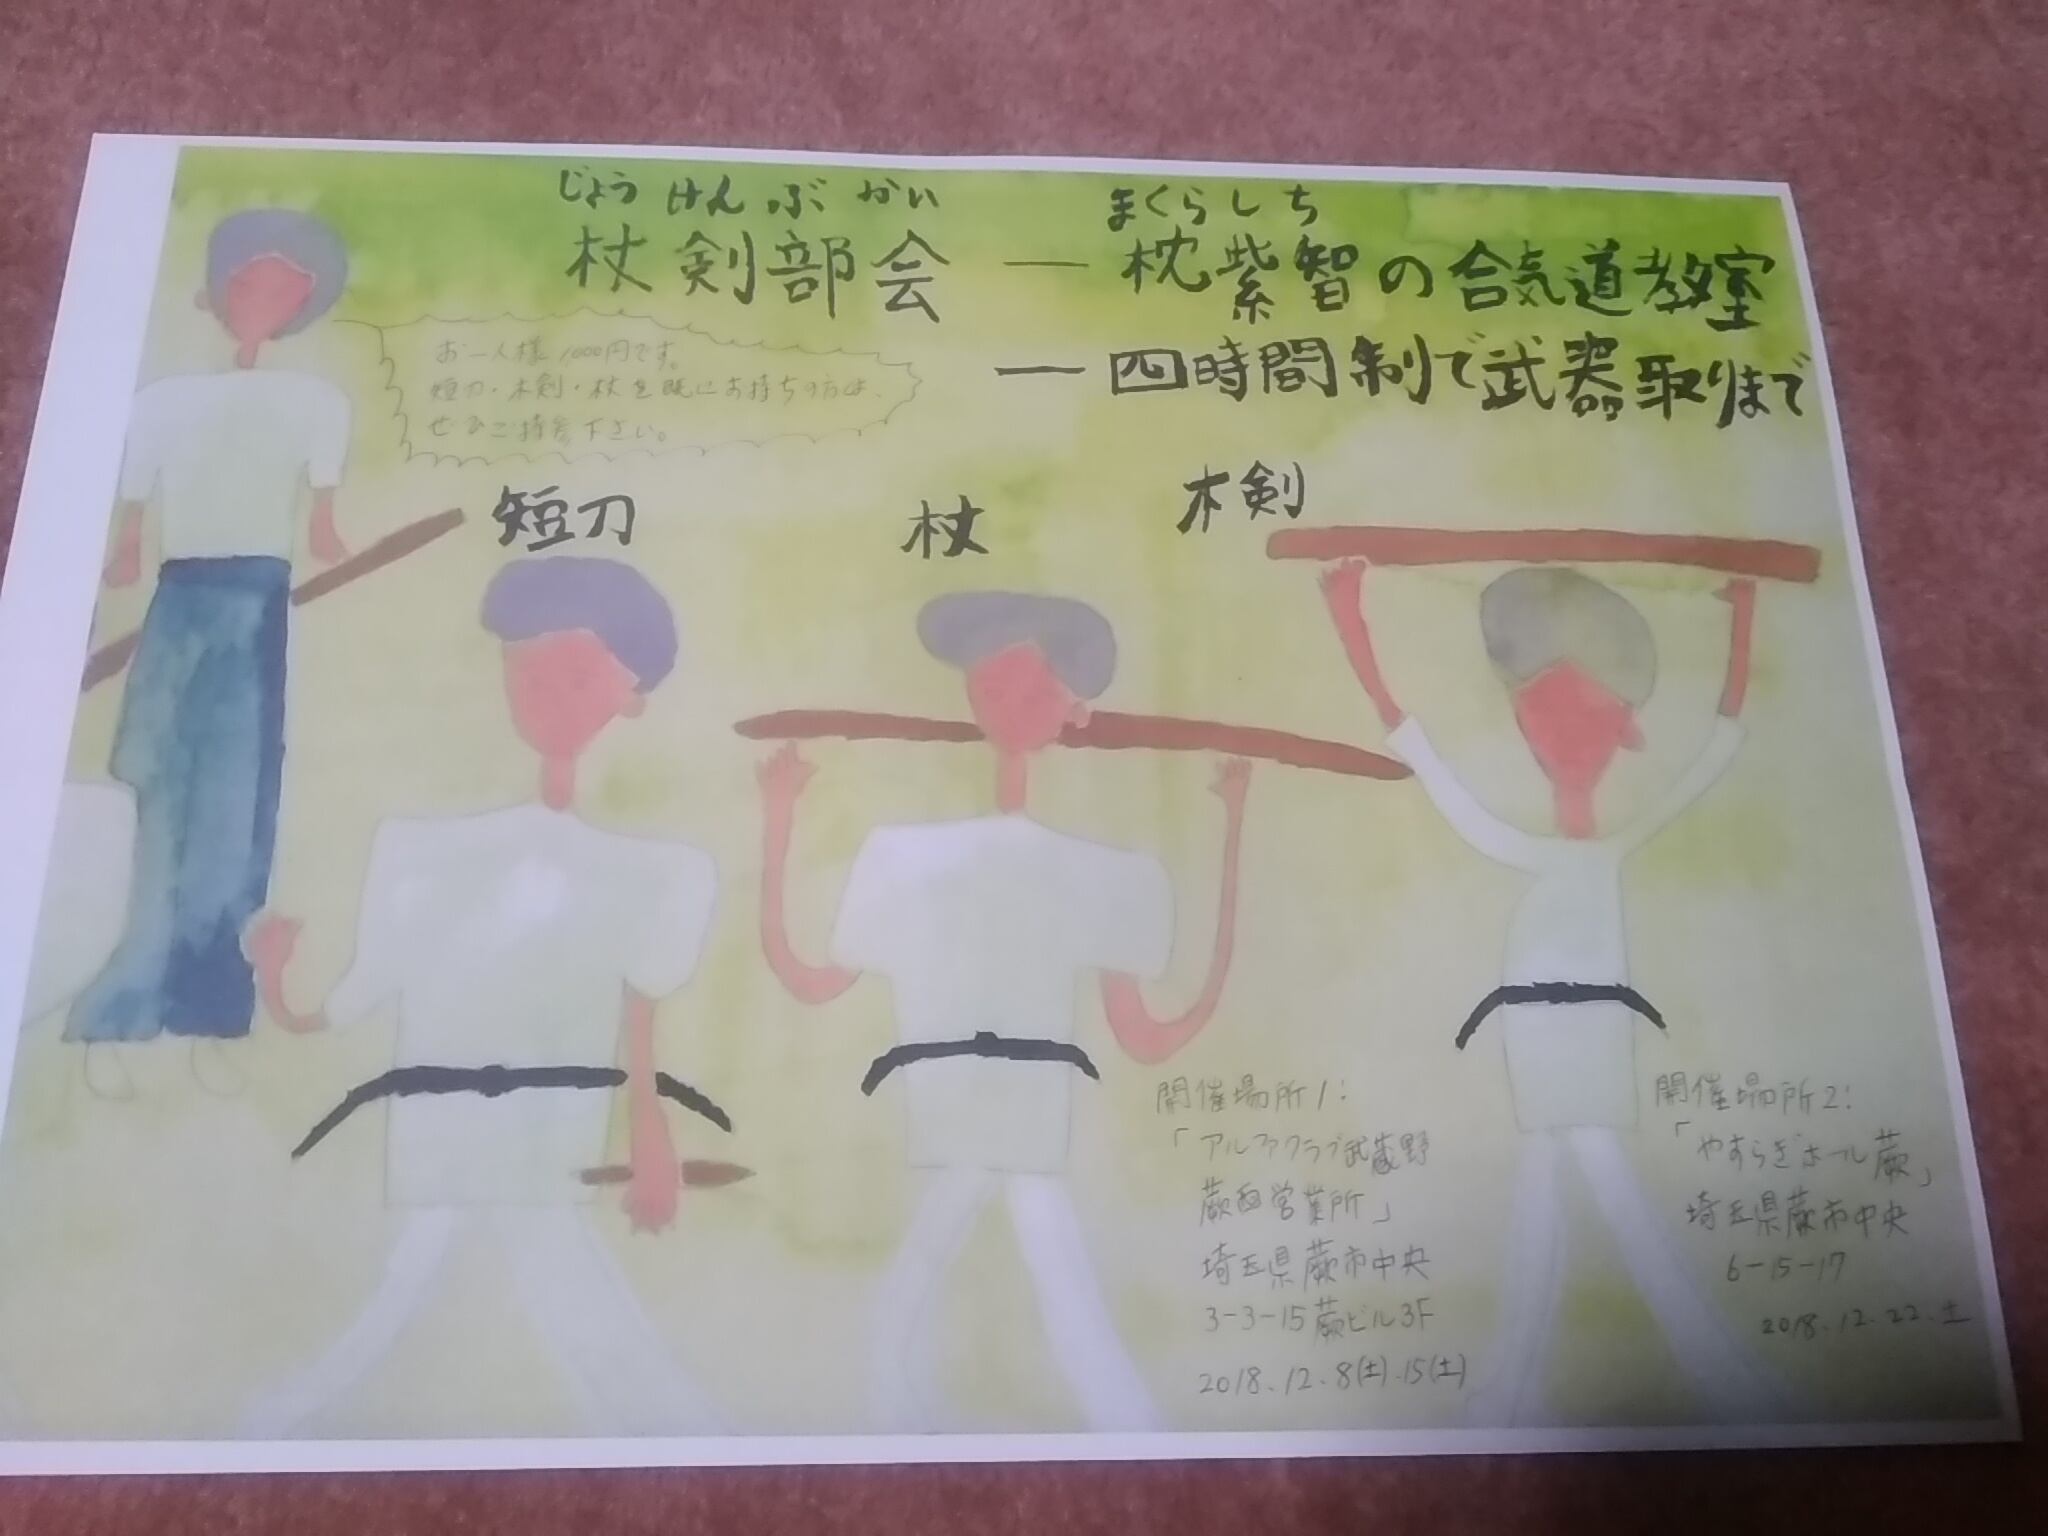 じょうけんぶかい
杖剣部会
まくらしち
― 枕紫智の合気道教室
― 四時間制で武器取りまで
お一人様1000円です。
短刀・木剣・杖を既にお持ちの方は、
ぜひご持参下さい。
短刀
杖
木剣
開催場所1:
「アルファクラブ武蔵野
蕨西営業所」
埼玉県蕨市中央
3-3-15蕨ビル3F
2018.12.8(土).15(土)
開催場所2:
「やすらぎホール蕨」
埼玉県蕨市中央
6-15-17
2018.12.22.土